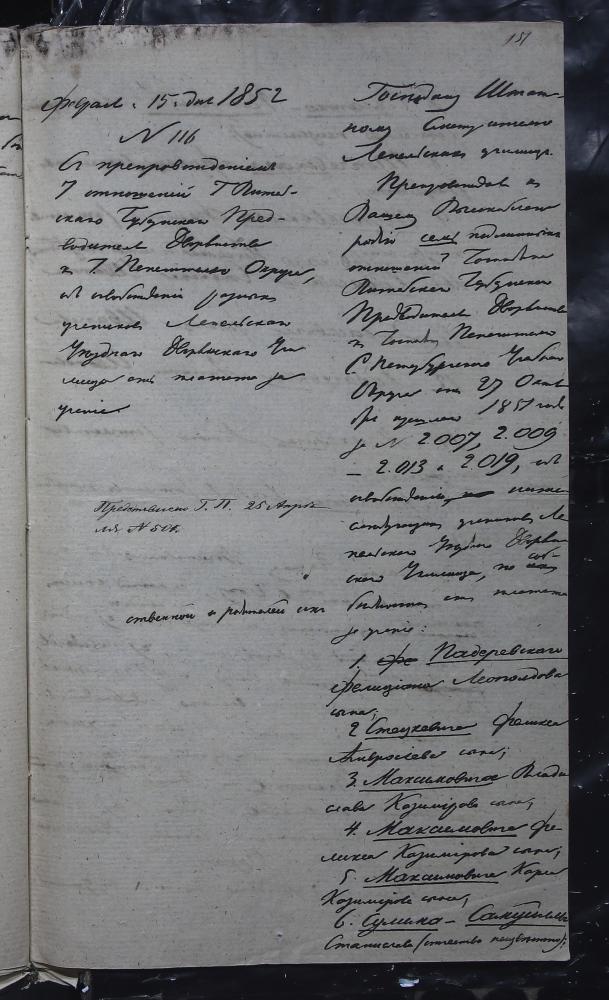 151
Феврал. 15. дня 1852
N 116
Съ препровожденіемъ
7 отношеній Г. Витеб-
скаго Губернскаго Пред-
водителя Дворянства
къ Г. Попечителю Округа,
объ освобожденіи разныхъ
учениковъ Лепельскаго
Уѣзднаго Дворянскаго Учи-
лища отъ платежа за
ученіе
Представлено Г. П. 25 Апрѣ-
ля N 501.
ственной и родителей ихъ
Господину Штат-
ному Смотрителю
Лепельскаго училища.
Препровождая къ
Вашему Высокоблаго-
родію семь подлинныхъ
отношеній Господина
Витебскаго Губернскаго
Предводителя Дворянства
къ Господину Попечителю
С. Петербургскаго Учебнаго
Округа отъ 27 Октя-
бря прошлаго 1851 года
за N 2.007, 2.009
– 2.013 и 2.019, объ
освобожденіи
слѣдующихъ учениковъ Ле-
пельскаго Уѣзднаго Дворян-
скаго Училища, по соб-
бѣдности отъ платежа
за ученіе:
1. Падеревскаго
Фелиціана Леопольдова
сына;
2. Стецкевича Феликса
Амвросіева сына;
3. Максимовича Влади-
слава Казимірова сына;
4. Максимовича Фе-
ликса Казимірова сына;
5. Максимовича Карла
Казимірова сына;
6. Сулима-Самуйло
Станислава (отчество неизвѣстно);